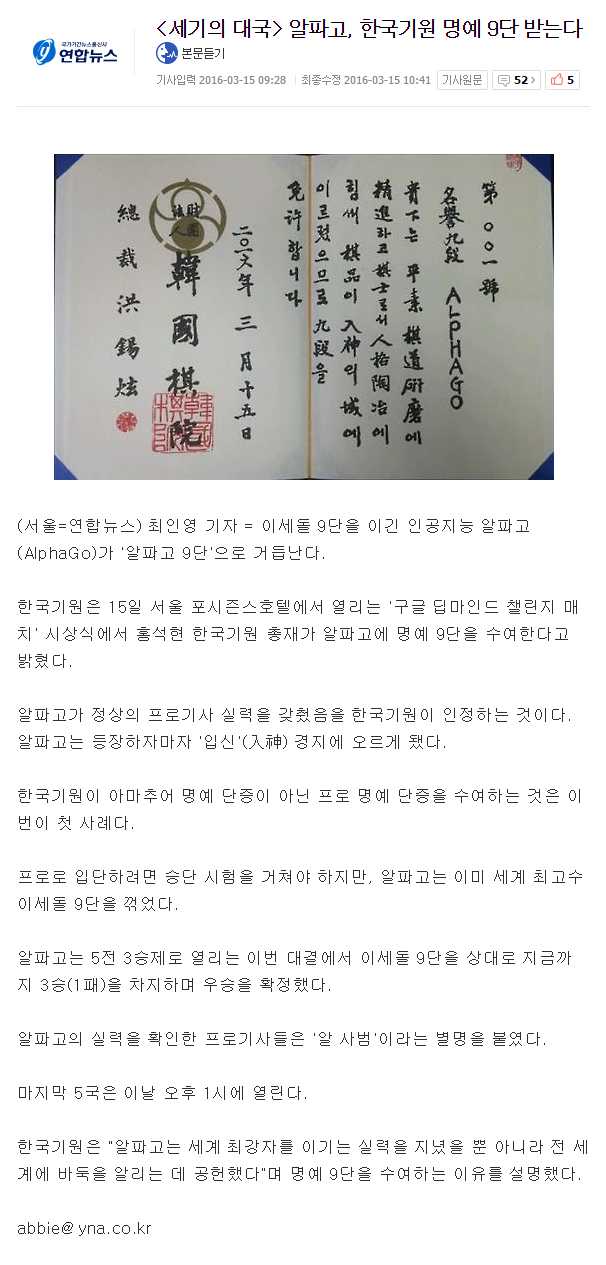 국가기간뉴스통신사
연합뉴스
<세기의 대국> 알파고, 한국기원 명예 9단 받는다
본문듣기
기사입력 2016-03-15 09:28 | 최종수정 2016-03-15 10:41 기사원문 52 5
第〇〇一號
名譽九段 ALPHAGO
貴下는 平素 棋道硏磨에
精進하고 棋士로서 人格陶冶에
힘써 棋品이 入神의 域에
이르렀으므로 九段을
免許합니다
二〇一六年 三月十五日
財團法人 韓國棋院
總裁 洪錫炫
(서울=연합뉴스) 최인영 기자 = 이세돌 9단을 이긴 인공지능 알파고
(AlphaGo)가 '알파고 9단'으로 거듭난다.
한국기원은 15일 서울 포시즌스호텔에서 열리는 '구글 딥마인드 챌린지 매
치' 시상식에서 홍석현 한국기원 총재가 알파고에 명예 9단을 수여한다고
밝혔다.
알파고가 정상의 프로기사 실력을 갖췄음을 한국기원이 인정하는 것이다.
알파고는 등장하자마자 '입신'(入神) 경지에 오르게 됐다.
한국기원이 아마추어 명예 단증이 아닌 프로 명예 단증을 수여하는 것은 이
번이 첫 사례다.
프로로 입단하려면 승단 시험을 거쳐야 하지만, 알파고는 이미 세계 최고수
이세돌 9단을 꺾었다.
알파고는 5전 3승제로 열리는 이번 대결에서 이세돌 9단을 상대로 지금까
지 3승(1패)을 차지하며 우승을 확정했다.
알파고의 실력을 확인한 프로기사들은 '알 사범'이라는 별명을 붙였다.
마지막 5국은 이날 오후 1시에 열린다.
한국기원은 "알파고는 세계 최강자를 이기는 실력을 지녔을 뿐 아니라 전 세
계에 바둑을 알리는 데 공헌했다"며 명예 9단을 수여하는 이유를 설명했다.
abbie@yna.co.kr